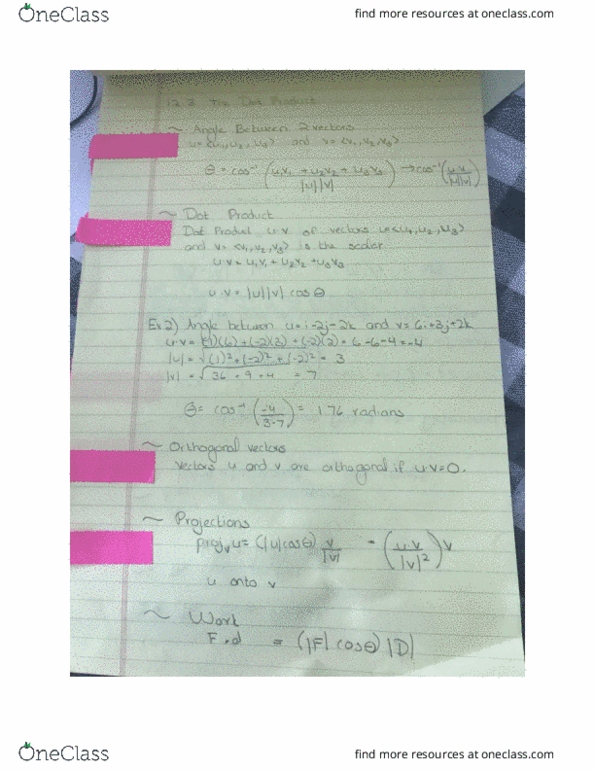 OneClass
find more resources at oneclass.com
12.3 The Dot Product
~ Angle Between 2 vectors
u=<u₁,u₂,u₃> and v=<v₁,v₂,v₃>
θ = cos⁻¹ (u₁v₁ + u₂v₂ + u₃v₃ / |u||v|) → cos⁻¹ (u·v / |u||v|)
~ Dot Product
Dot Product u·v of vectors u=<u₁,u₂,u₃>
and v=<v₁,v₂,v₃> is the scalar
u·v = u₁v₁ + u₂v₂ + u₃v₃
u·v = |u||v| cos θ
Ex 2) Angle between u=i-2j-2k and v=6i+3j+2k
u·v = (1)(6) + (-2)(3) + (-2)(2) = 6-6-4=-4
|u| = √(1)²+(-2)²+(-2)² = 3
|v| = √36 + 9 + 4 = 7
θ = cos⁻¹ (-4 / 3·7) = 1.76 radians
~ Orthogonal vectors
vectors u and v are orthogonal if u·v=0.
~ Projections
projᵥu = (|u|cosθ) v/|v| = (u·v / |v|²) v
u onto v
~ Work
F·d = (|F| cosθ) |D|
OneClass
find more resources at oneclass.com